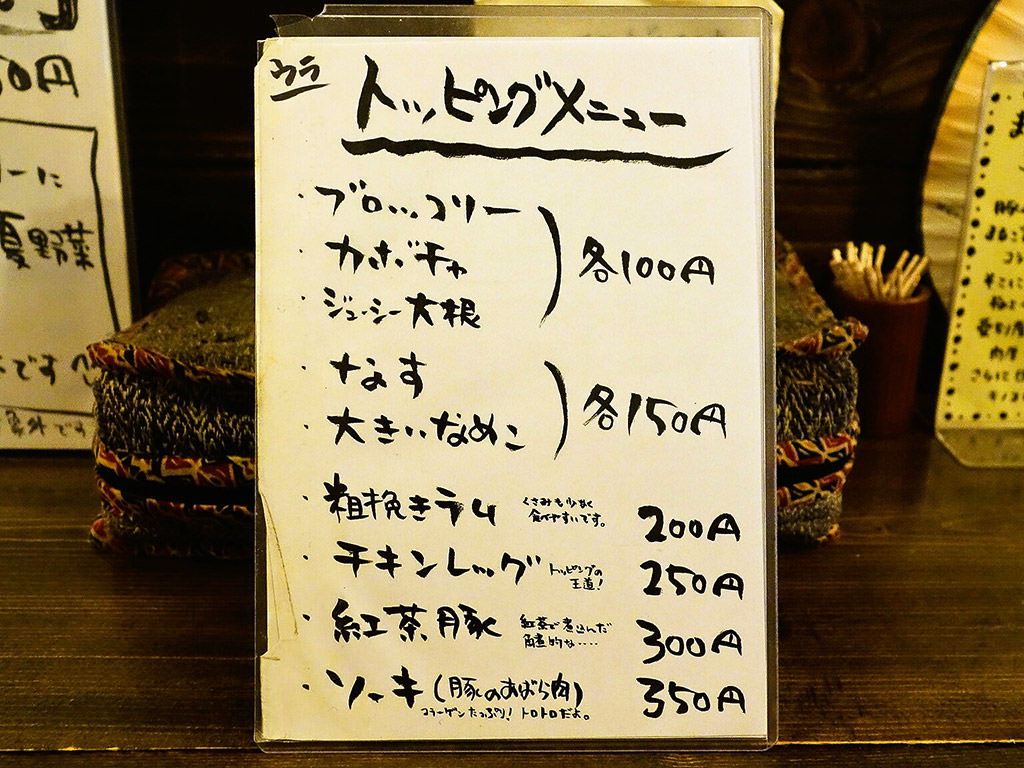 ウラ
トッピングメニュー
・ブロッコリー
・カボチャ
・ジューシー大根
各100円
・なす
・大きいなめこ
各150円
・粗挽きラム くさみも少なく
食べやすいです。
200円
・チキンレッグ トッピングの
王道!
250円
・紅茶豚 紅茶で煮込んだ
角煮的な‥‥
300円
・ソーキ(豚のあばら肉)
コラーゲンたっぷり! トロトロだよ。
350円
50円
ーに
夏野菜
です
象外です